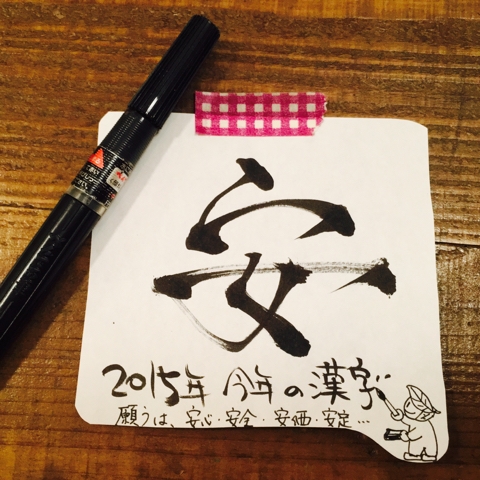 安
2015年 今年の漢字
願うは、安心・安全・安価・安定…